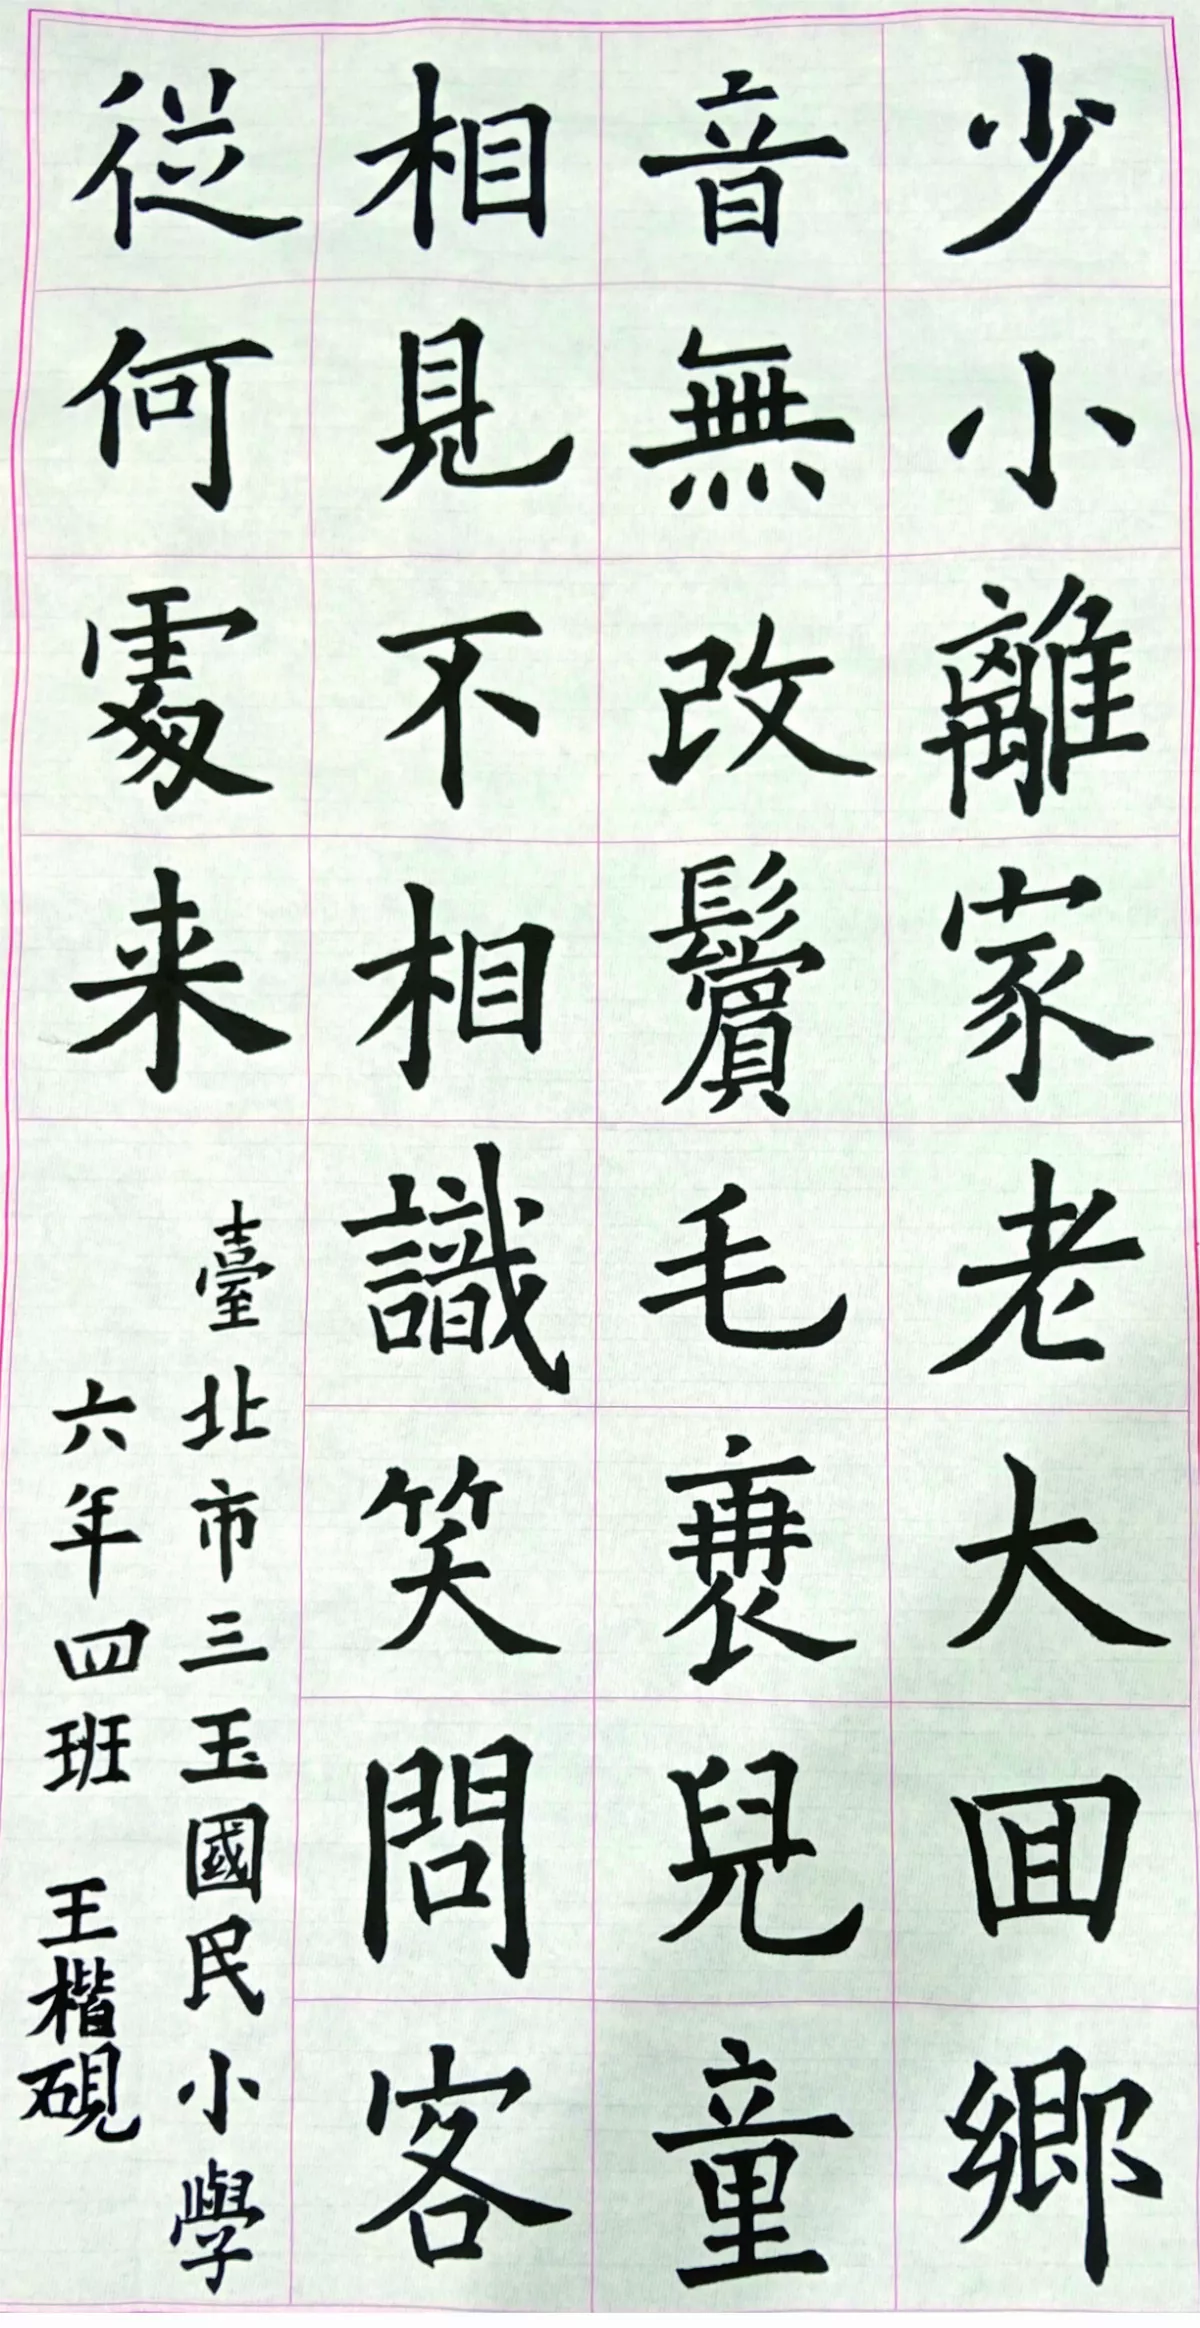 少小離家老大回鄉
音無改鬢毛衰兒童
相見不相識笑問客
從何處来
臺北市三玉國民小學
六年四班 王楷硯